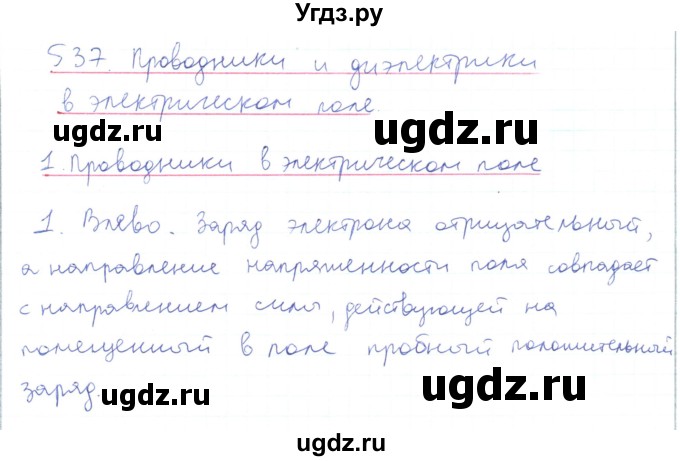 Угдз.ру
§37. Проводники и диэлектрики
в электрическом поле.
ugdz.ru
ugdz.ru
1. Проводники в электрическом поле
1. Влево. Заряд электрона отрицательный,
а направление напряженности поля совпадает
с направлением силы, действующей на
помещенный в поле пробный положительный
заряд.
ugdz.ru
ugdz.ru
ugdz.ru